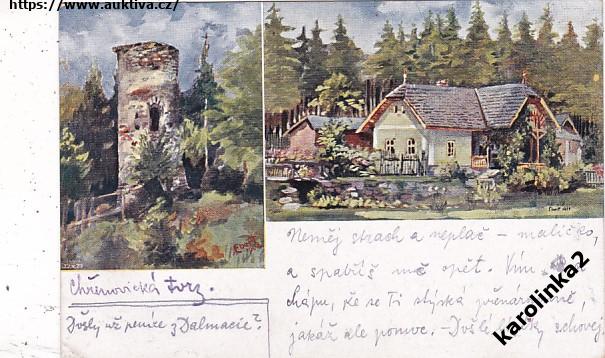 https://www.auktiva.cz/
Chřenovická tvrz.
Došly už peníze z Dalmacie?
Neměj strach a neplač – maličko,
a spatříš mě opět. Vím,
chápu, že se Ti stýská
jakáž ale pomoc. – Došlé schovej
karolinka2